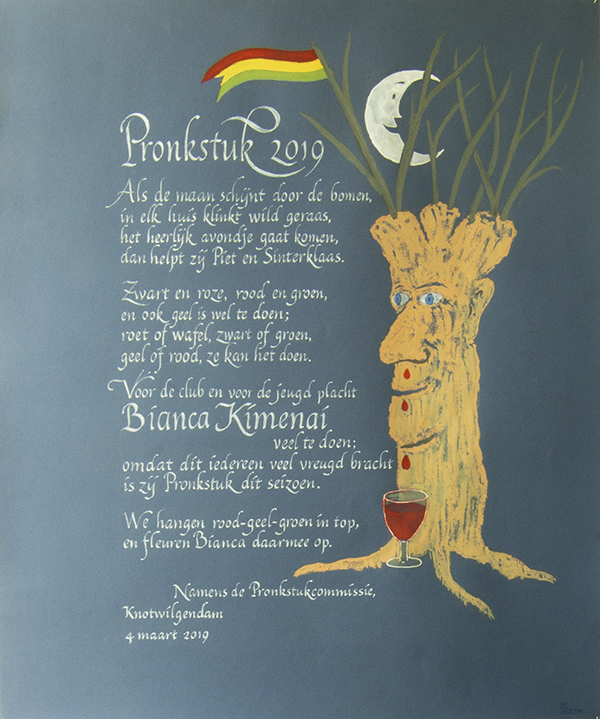 Pronkstuk 2019
Als de maan schijnt door de bomen,
in elk huis klinkt wild geraas,
het heerlijk avondje gaat komen,
dan helpt zij Piet en Sinterklaas.
Zwart en roze, rood en groen,
en ook geel is wel te doen;
roet of wafel, zwart of groen,
geel of rood, ze kan het doen.
Voor de club en voor de jeugd placht
Bianca Kimenai
veel te doen;
omdat dit iedereen veel vreugd bracht
is zij Pronkstuk dit seizoen.
We hangen rood-geel-groen in top,
en fleuren Bianca daarmee op.
Namens de Pronkstukcommissie,
Knotwilgendam
4 maart 2019